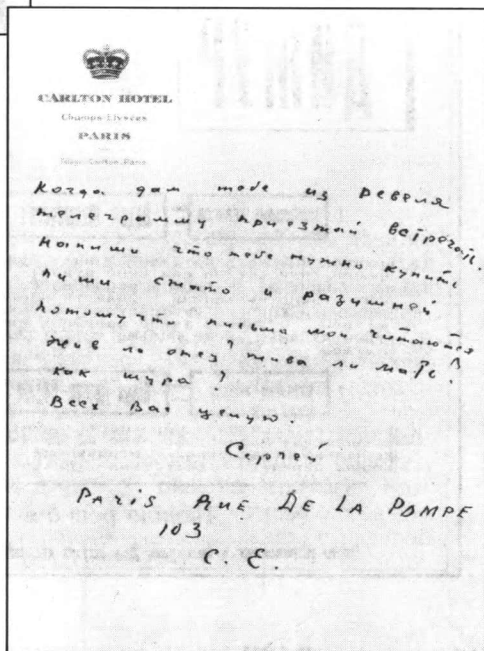 CARLTON HOTEL
Champs Elysées
PARIS
Когда дам тебе из Ревеля
телеграмму приезжай встречать.
Напиши что тебе нужно купить
Пиши сжато и разумней
Потому что письма мои читаются
Жив ли отец? жива ли мать?
Как Шура?
Всех вас целую.
Сергей
PARIS RUE DE LA POMPE
103
С. Е.